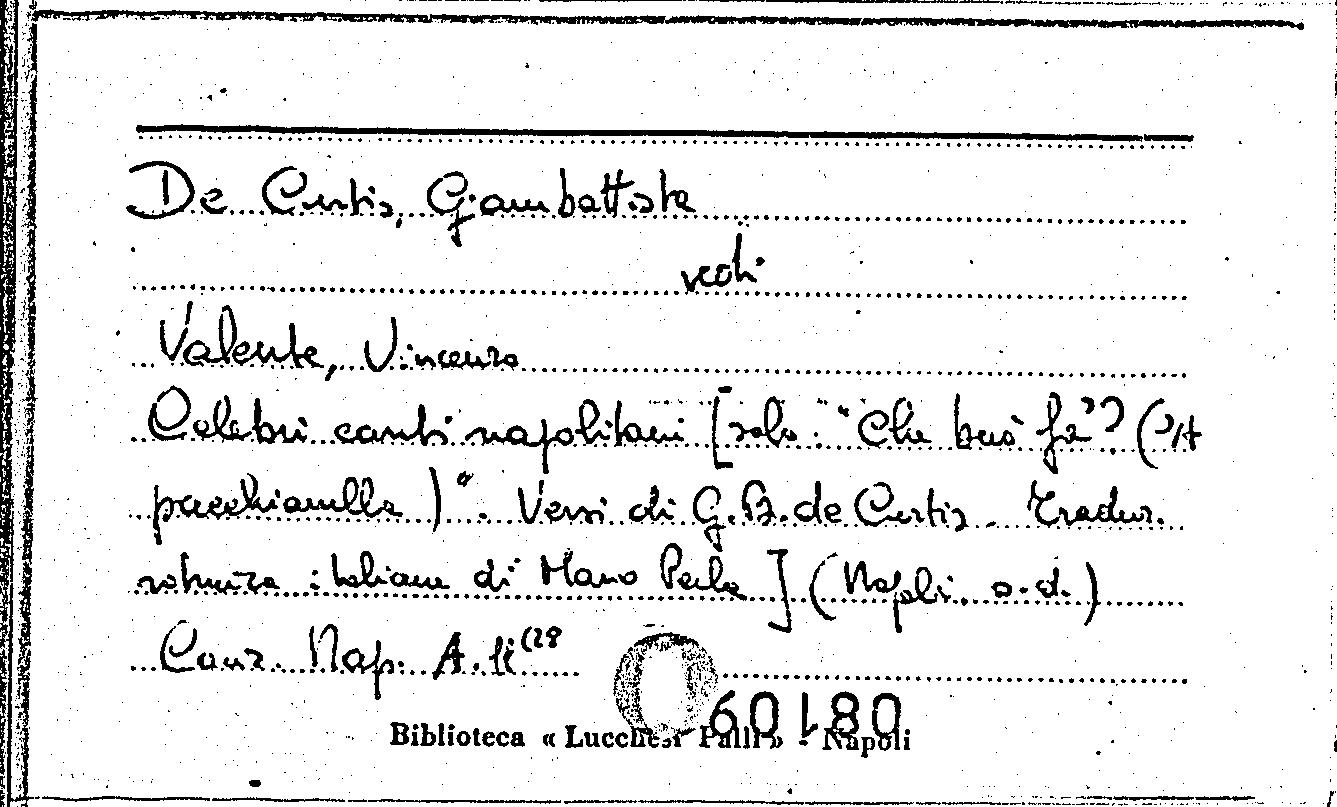 De Curtis, Giambattista
vedi
Valente, Vincenzo
Celebri canti napolitani [solo: "Che buò fà"? ('A
pacchianella)". Versi di G.B. de Curtis. Traduz.
ritmica italiana di Mario Perla] (Napoli. s.d.)
Canz. Nap. A.
Biblioteca « Lucchesi Palli » - Napoli
60180